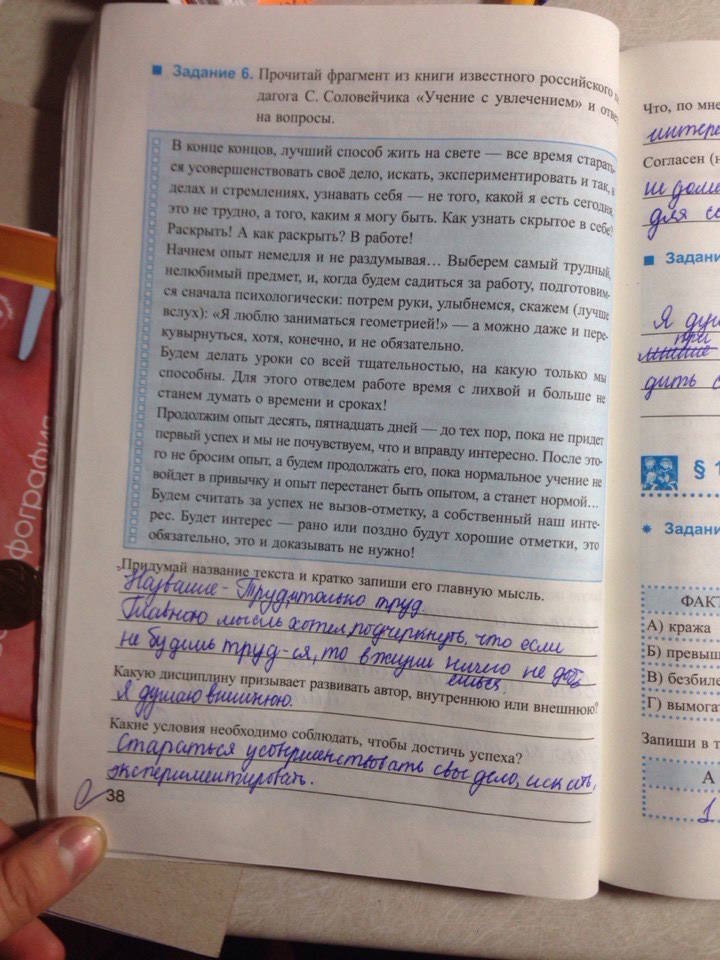 ■ Задание 6. Прочитай фрагмент из книги известного российского
дагога С. Соловейчика «Учение с увлечением» и отве
на вопросы.
В конце концов, лучший способ жить на свете — все время старать-
ся усовершенствовать своё дело, искать, экспериментировать и так, в
делах и стремлениях, узнавать себя — не того, какой я есть сегодня,
это не трудно, а того, каким я могу быть. Как узнать скрытое в себе?
Раскрыть! А как раскрыть? В работе!
Начнем опыт немедля и не раздумывая... Выберем самый трудный,
нелюбимый предмет, и, когда будем садиться за работу, подготовим-
ся сначала психологически: потрем руки, улыбнемся, скажем (лучше
вслух): «Я люблю заниматься геометрией!» — а можно даже и пере-
кувырнуться, хотя, конечно, и не обязательно.
Будем делать уроки со всей тщательностью, на какую только мы
способны. Для этого отведем работе время с лихвой и больше не
станем думать о времени и сроках!
Продолжим опыт десять, пятнадцать дней — до тех пор, пока не придет
первый успех и мы не почувствуем, что и вправду интересно. После это-
го не бросим опыт, а будем продолжать его, пока нормальное учение не
войдет в привычку и опыт перестанет быть опытом, а станет нормой...
Будем считать за успех не вызов-отметку, а собственный наш инте-
рес. Будет интерес — рано или поздно будут хорошие отметки, это
обязательно, это и доказывать не нужно!
Придумай название текста и кратко запиши его главную мысль.
Название - Труд, только труд.
Главною мысль хотел подчеркнуть, что если
не будешь труд-ся, то в жизни ничего не доб
ьешься.
Какую дисциплину призывает развивать автор, внутреннюю или внешнюю?
Я думаю внешнюю.
Какие условия необходимо соблюдать, чтобы достичь успеха?
Стараться усовершенствовать свое дело, искать,
экспериментировать.
38
фография
Что, по мне
интере
Согласен (н
не дома
для
■ Задани
Я дум
при
дить с
§ 1
Задани
ФАКТ
А) кража
Б) превыш
В) безбиле
Г) вымогат
Запиши в т
А
1